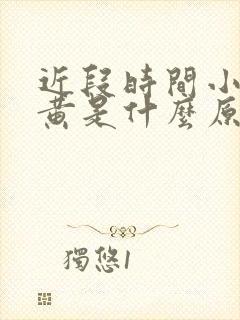 近段時間小
黃是什麼原
獨悠1